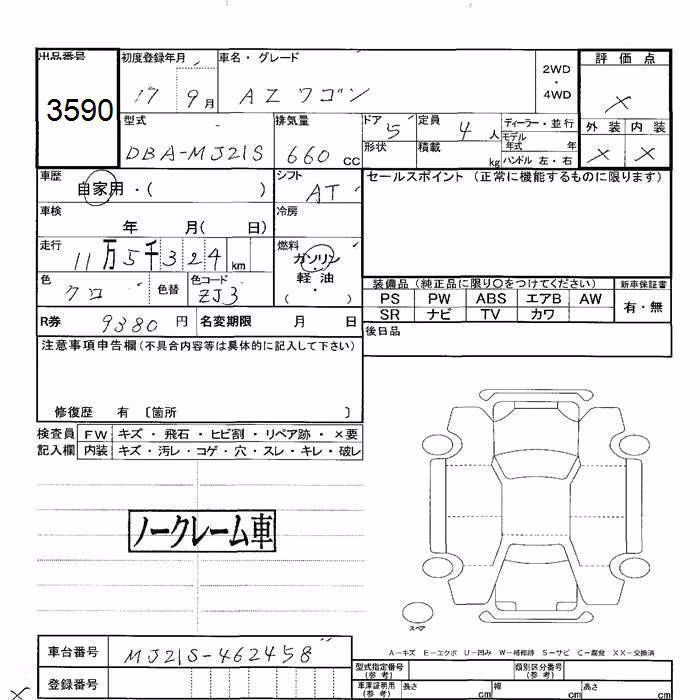 出品番号 初度登録年月 車名・グレード 評価点
3590 17 9月 AZワゴン 2WD ・ 4WD ×
型式 排気量 ドア 5 定員 4人 ディーラー・並行 外装 内装
DBA-MJ21S 660cc 形状 積載 kg モデル年式 年 × ×
ハンドル 左・右
車歴 自家用・( ) シフト AT セールスポイント (正常に機能するものに限ります)
車検 年 月( 日) 冷房
走行 11万5千324km 燃料 ガソリン・軽油
( )
色 クロ 色替 色コード ZJ3 装備品(純正品に限り○をつけてください) 新車保証書
PS PW ABS エアB AW 有・無
SR ナビ TV カワ
R券 9380円 名変期限 月 日 後日品
注意事項申告欄(不具合内容等は具体的に記入して下さい)
修復歴 有 〔箇所 〕
検査員 FW キズ・飛石・ヒビ割・リペア跡・×要
記入欄 内装 キズ・汚レ・コゲ・穴・スレ・キレ・破レ
ノークレーム車
スペア
A-キズ E-エクボ U-凹み W-補修跡 S-サビ C-腐食 XX-交換済
車台番号 MJ21S-462458
登録番号
型式指定番号(参考) 類別区分番号(参考)
車庫証明用(参考) 長さ cm 幅 cm 高さ cm